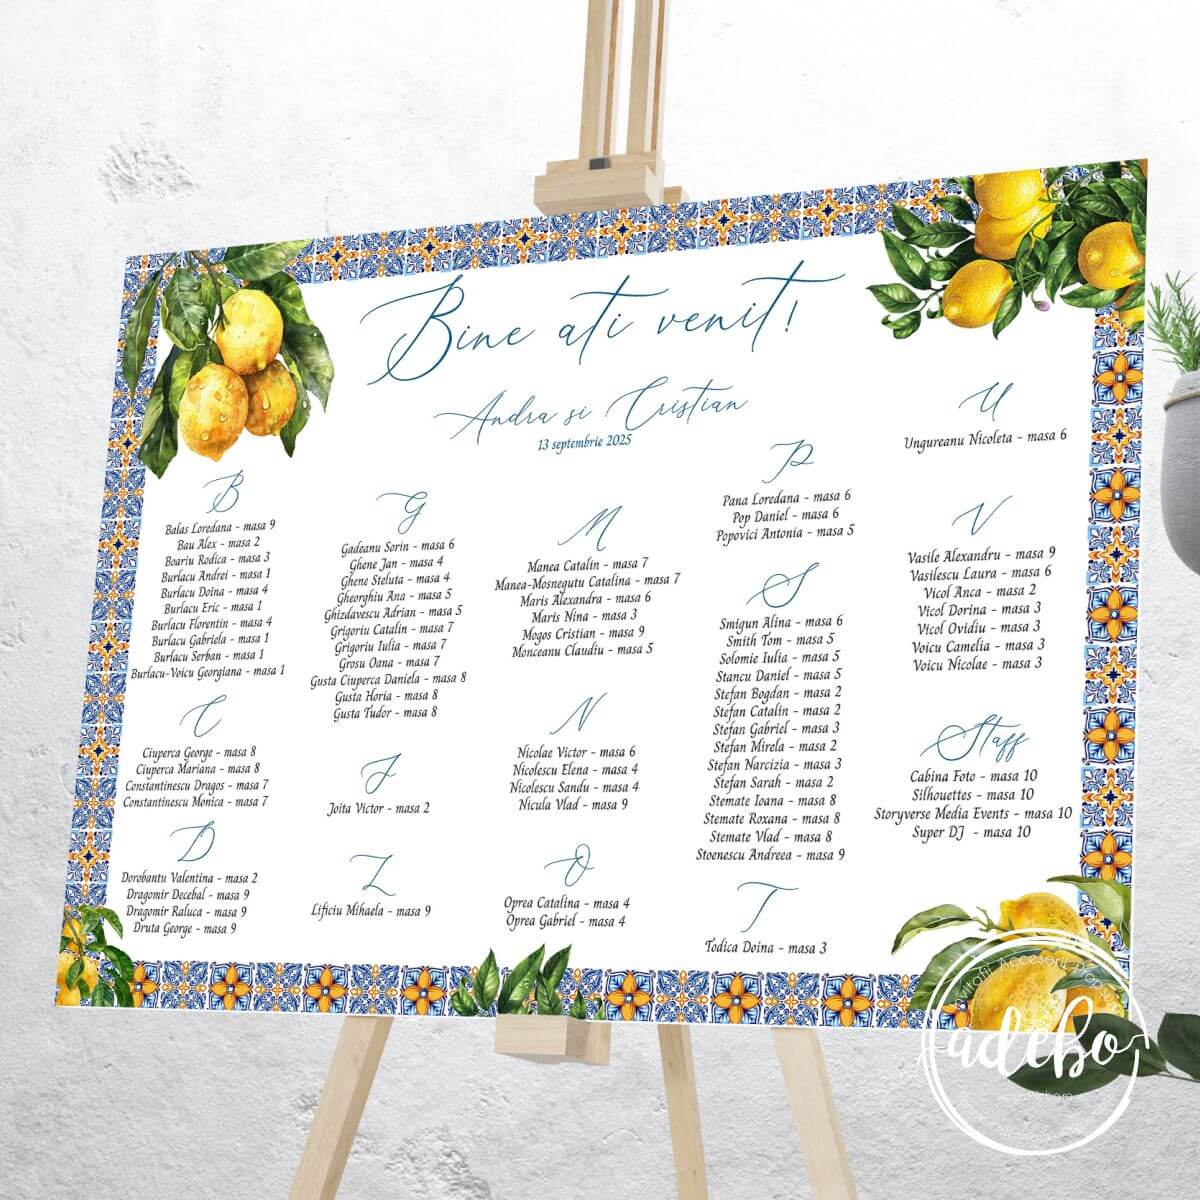 Bine ati venit!
Andra si Cristian
13 septembrie 2025
B
Balas Loredana - masa 9
Bau Alex - masa 2
Boariu Rodica - masa 3
Burlacu Andrei - masa 1
Burlacu Doina - masa 4
Burlacu Eric - masa 1
Burlacu Florentin - masa 4
Burlacu Gabriela - masa 1
Burlacu Serban - masa 1
Burlacu-Voicu Georgiana - masa 1
C
Ciuperca George - masa 8
Ciuperca Mariana - masa 8
Constantinescu Dragos - masa 7
Constantinescu Monica - masa 7
D
Dorobantu Valentina - masa 2
Dragomir Decebal - masa 9
Dragomir Raluca - masa 9
Druta George - masa 9
G
Gadeanu Sorin - masa 6
Ghene Jan - masa 4
Ghene Steluta - masa 4
Gheorghiu Ana - masa 5
Ghizdavescu Adrian - masa 5
Grigoriu Catalin - masa 7
Grigoriu Iulia - masa 7
Grosu Oana - masa 7
Gusta Ciuperca Daniela - masa 8
Gusta Horia - masa 8
Gusta Tudor - masa 8
J
Joita Victor - masa 2
L
Lificiu Mihaela - masa 9
M
Manea Catalin - masa 7
Manea-Mosnegutu Catalina - masa 7
Maris Alexandra - masa 6
Maris Nina - masa 3
Mogos Cristian - masa 9
Monceanu Claudiu - masa 5
N
Nicolae Victor - masa 6
Nicolescu Elena - masa 4
Nicolescu Sandu - masa 4
Nicula Vlad - masa 9
O
Oprea Catalina - masa 4
Oprea Gabriel - masa 4
P
Pana Loredana - masa 6
Pop Daniel - masa 6
Popovici Antonia - masa 5
S
Smigun Alina - masa 6
Smith Tom - masa 5
Solomie Iulia - masa 5
Stancu Daniel - masa 5
Stefan Bogdan - masa 2
Stefan Catalin - masa 2
Stefan Gabriel - masa 3
Stefan Mirela - masa 2
Stefan Narcizia - masa 3
Stefan Sarah - masa 2
Stemate Ioana - masa 8
Stemate Roxana - masa 8
Stemate Vlad - masa 8
Stoenescu Andreea - masa 9
T
Todica Doina - masa 3
U
Ungureanu Nicoleta - masa 6
V
Vasile Alexandru - masa 9
Vasilescu Laura - masa 6
Vicol Anca - masa 2
Vicol Dorina - masa 3
Vicol Ovidiu - masa 3
Voicu Camelia - masa 3
Voicu Nicolae - masa 3
Staff
Cabina Foto - masa 10
Silhouettes - masa 10
Storyverse Media Events - masa 10
Super DJ - masa 10
adebo